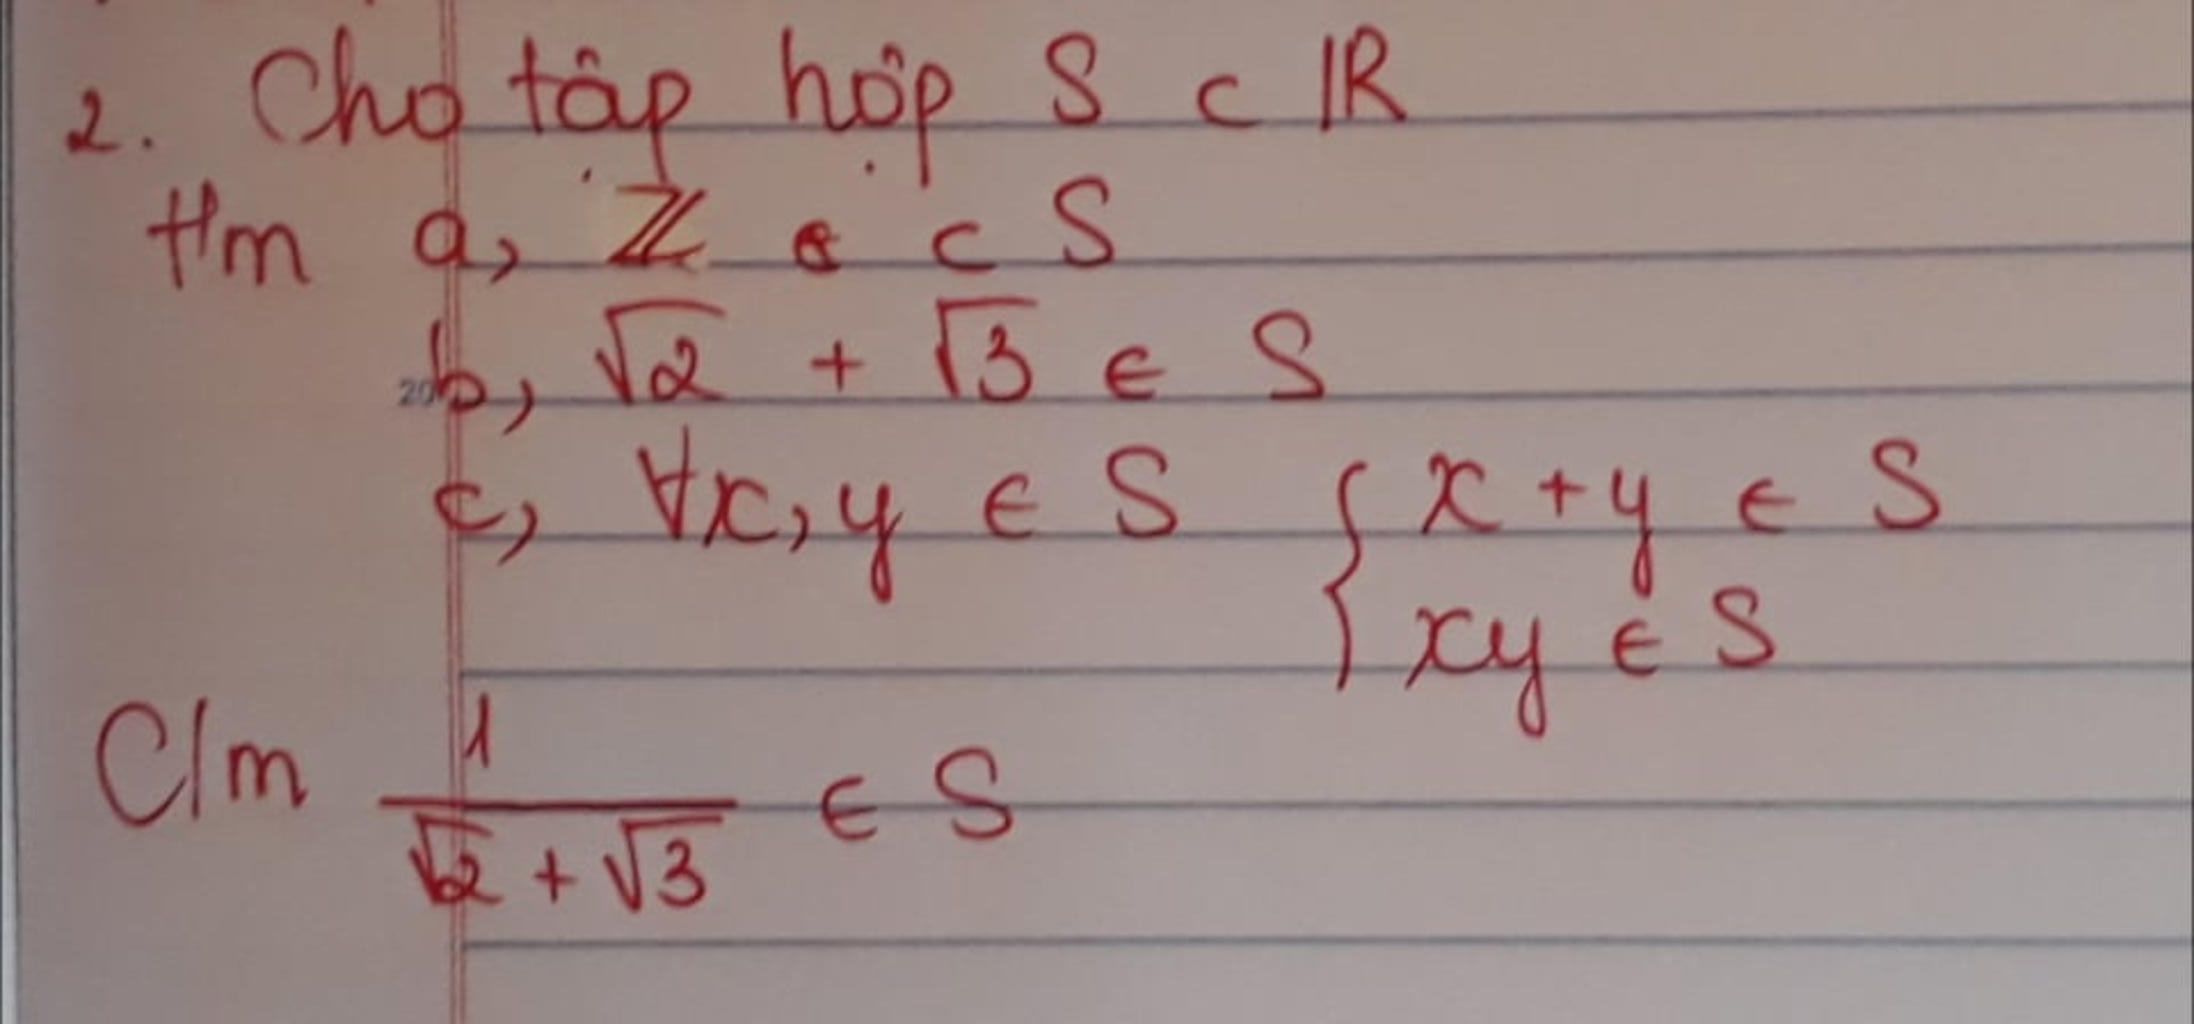 2. Cho tập hợp S ⊂ ℝ
t/m a, ℤ ⊂ S
b, √2 + √3 ∈ S
c, ∀x, y ∈ S { x + y ∈ S
xy ∈ S
C/m 1/(√2 + √3) ∈ S